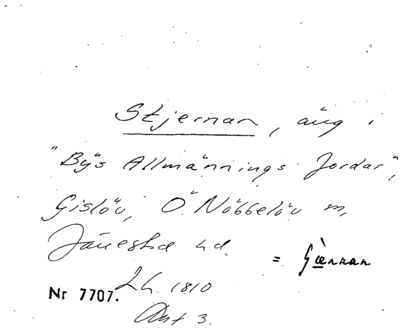 Stjernan, äng i
"Bys Allmännings Jordar",
Gislöv, Ö Nöbbelöv m,
Järrestad hd.
= Giærnan
Nr 7707. LH. 1810
Akt 3.